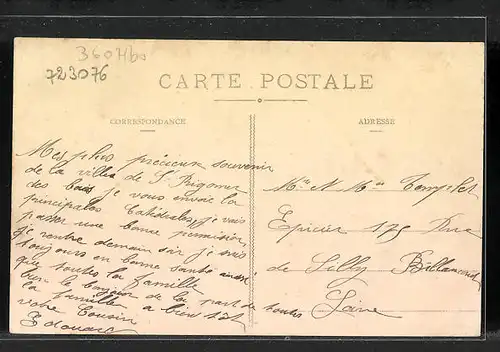 360Hbo
723076
CARTE POSTALE
CORRESPONDANCE
ADRESSE
Mes plus précieux souvenir
de la ville de St Rigomer
des bois je vous envoie la
principales Cathédrales, je vais
passer une bonne permission,
je rentre demain soir je suis
toujours en bonne santé
que toutes la famille
bien le bonjour de la part de toutes
la familles a bien tôt
votre Cousin
Edouard
Mr M Me Templet
Epicier 175 Rue
de Silly Billancourt
Seine